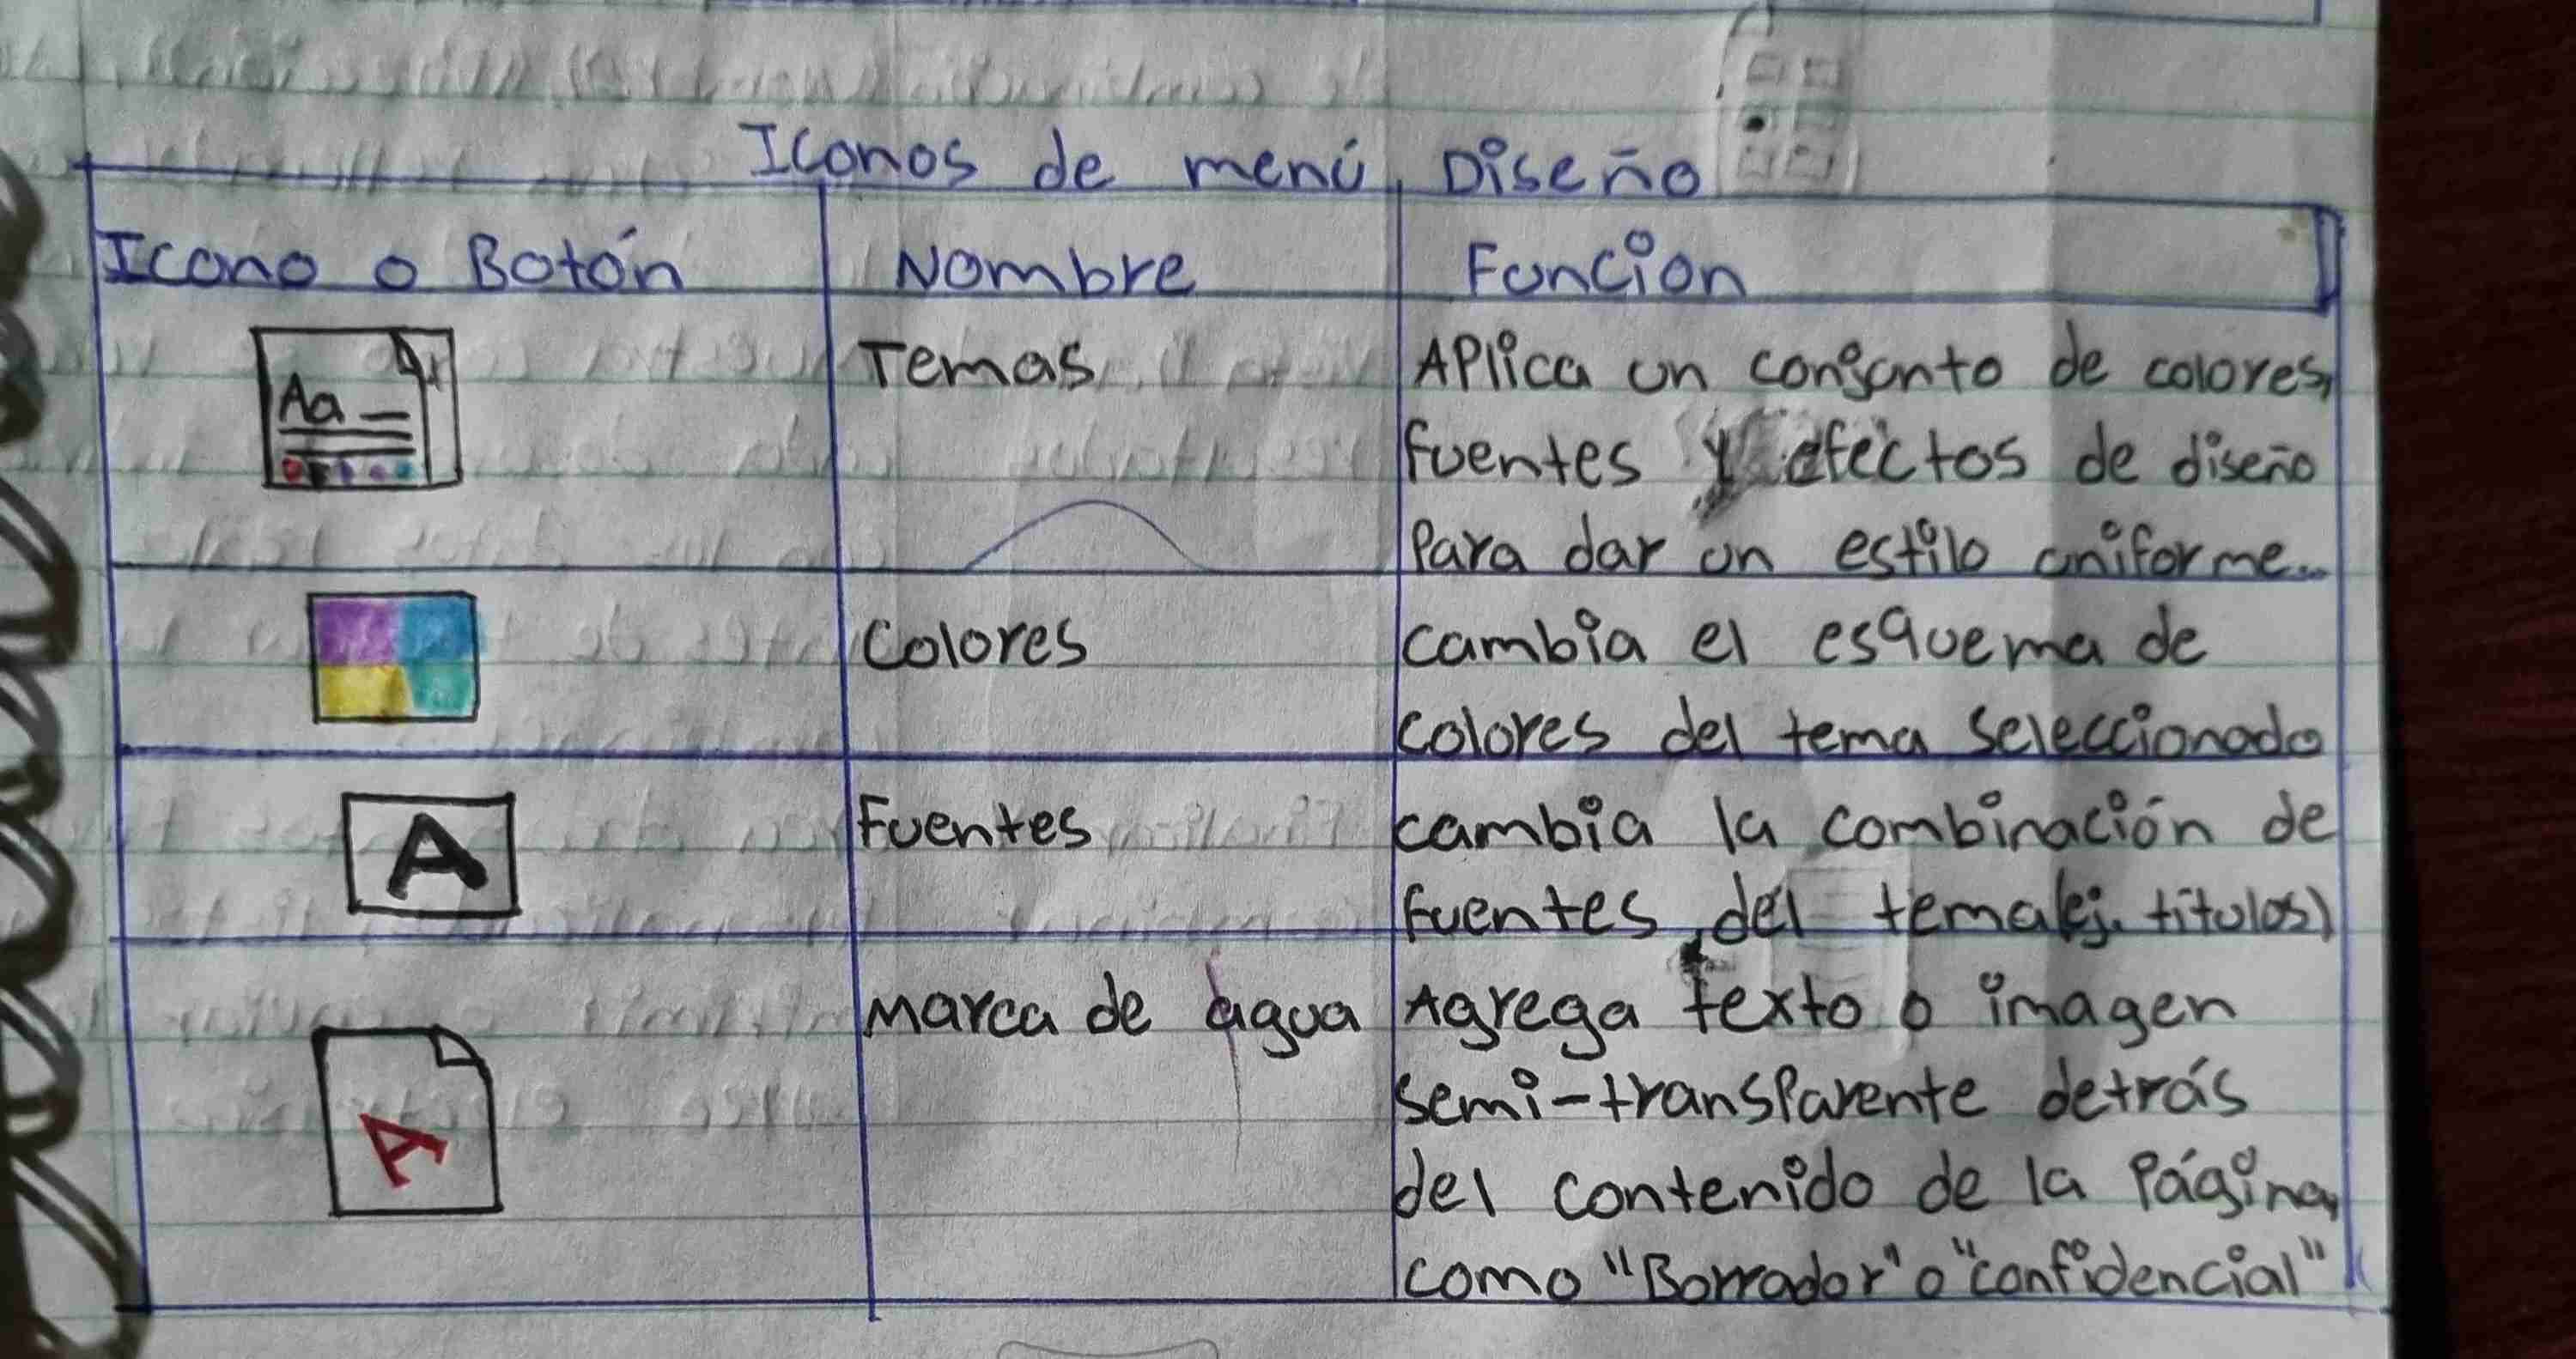 Iconos de menú Diseño
Icono o Botón
Nombre
Función
Aa
Temas
Aplica un conjunto de colores,
fuentes y efectos de diseño
Para dar un estilo uniforme.
Colores
cambia el esquema de
colores del tema seleccionado
A
Fuentes
cambia la combinación de
fuentes del tema(ej. titulos)
A
Marca de agua
Agrega texto o imagen
semi-transparente detrás
del contenido de la Página,
como "Borrador" o "confidencial"